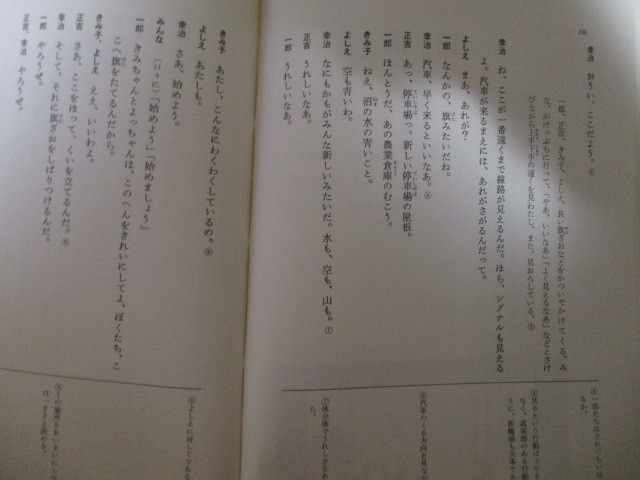 幸治　おうい、ここだよう。④
一郎、正吉、きみ子、よしえ、長い旗ざおなどをかついでかけてくる。み
な、がけっぷちに行って、「やあ、いいなあ」「よく見えるなあ」などとさけ
びながら上手下手の遠くを見わたし、また、見おろしている。⑤
幸治　ね、ここが一番遠くまで線路が見えるんだ。ほら、シグナルも見える
よ。汽車が来るまえには、あれがさがるんだって。
よしえ　まあ、あれが？
一郎　なんかの、旗みたいだね。
幸治　汽車、早く来るといいなあ。⑥
正吉　あっ、停車場っ。新しい停車場の屋根。
一郎　ほんとうだ、あの農業倉庫のむこう。
きみ子　ねえ、沼の水の青いこと。
よしえ　空も青いわ。
幸治　なにもかもがみんな新しいみたいだ。水も、空も、山も。⑦
正吉　うれしいなあ。
一郎　うれしいなあ。
きみ子　あたし、こんなにわくわくしているの。⑧
よしえ　あたしも。
幸治　さあ、始めよう。
みんな　（口々に）「始めよう」「始めましょう」
一郎　きみちゃんとよっちゃんは、このへんをきれいにしてよ、ぼくたち、こ
こへ旗をたてるんだから。
きみ子、よしえ　ええ、いいわよ。
正吉　さあ、ここをほって、くいを立てるんだ。⑨
幸治　そして、それに旗ざおをしばりつけるんだ。
一郎　やろうぜ。
正吉、幸治　やろうぜ。
④一郎たちはどれ
るか。
⑤見るという行動は
なく、真実感のある行動
うに。距離感も大事で
⑥汽車のくる方向を見な
⑦体全体でうれしさをあ
た。
⑧よしえに対してである
⑨その場所をあいまいにしな
はっきりと決める。